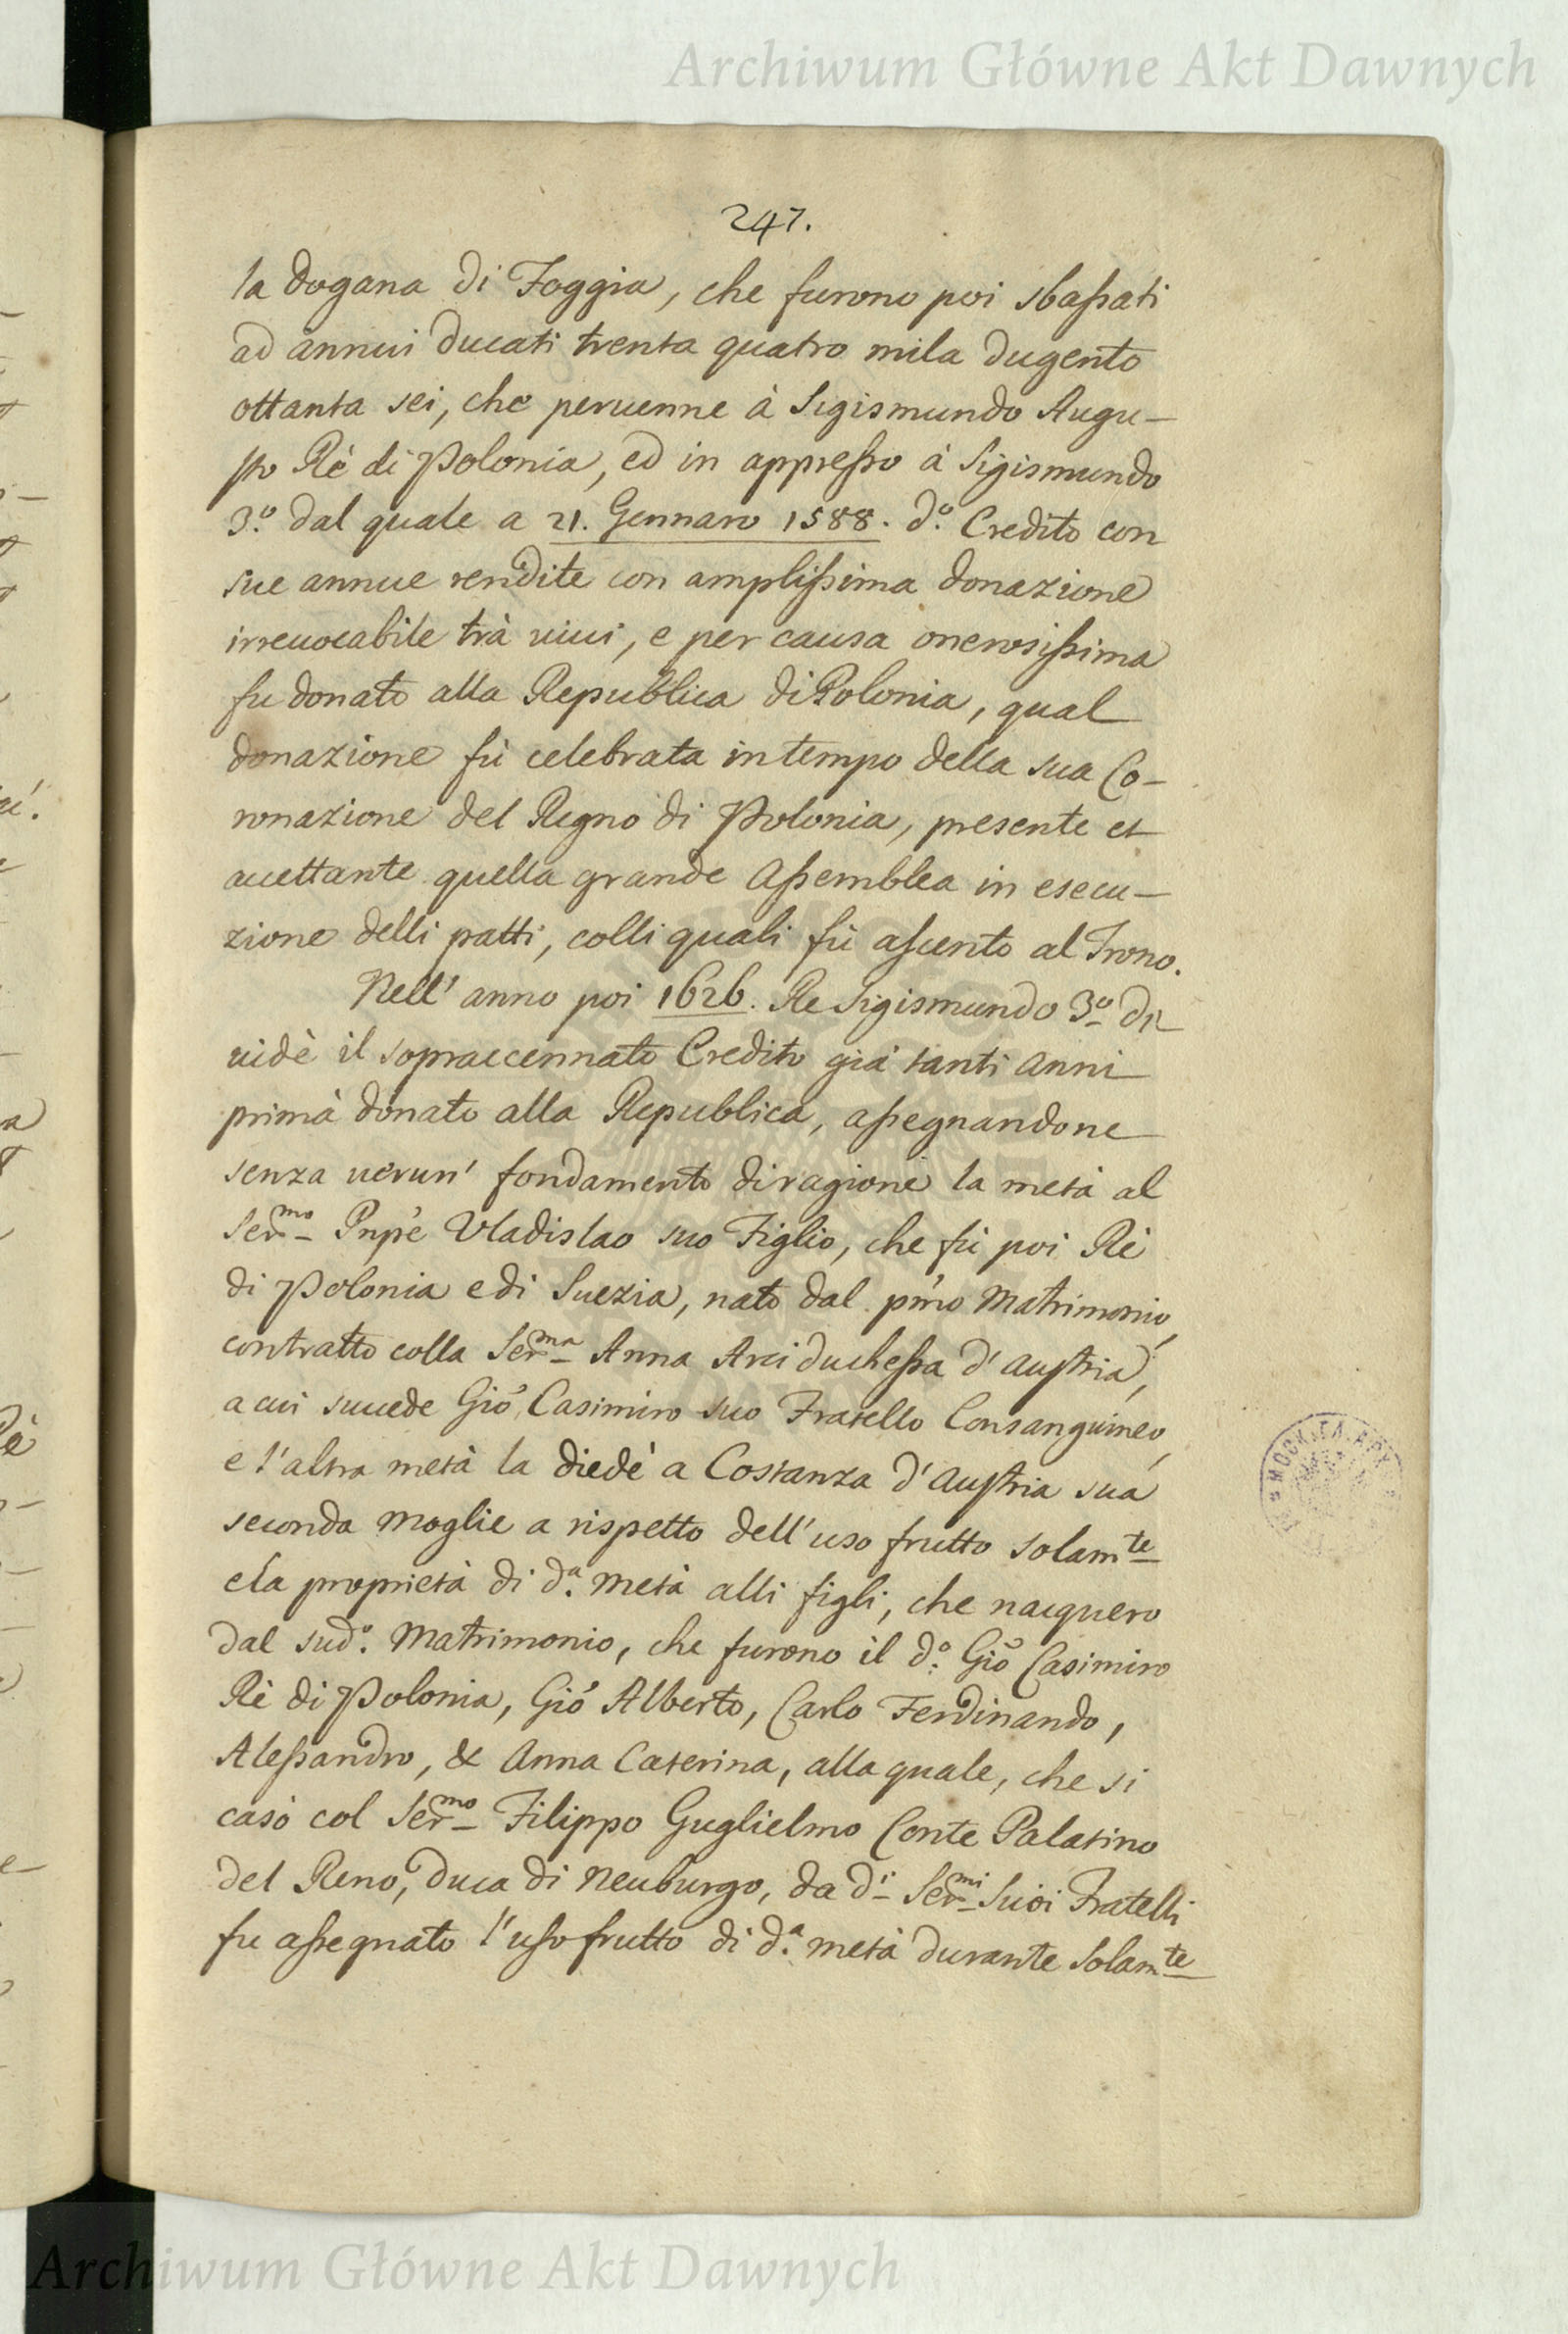 Archiwum Główne Akt Dawnych
247.
la dogana di Foggia, che furono poi sbassati
ad annui ducati trenta quatro mila dugento
ottanta sei, che peruenne à Sigismundo Augu-
sto Rè di Polonia, ed in appresso à Sigismundo
3.º dal quale a 21. Gennaro 1588. d.º Credito con
sue annue rendite con amplissima donazione
irreuocabile trà uiui, e per causa onerosissima
fu donato alla Republica di Polonia, qual
donazione fù celebrata in tempo della sua Co-
ronazione del Regno di Polonia, presente et
accettante quella grande Assemblea in esecu-
zione delli patti, colli quali fù assunto al Trono.
Nell' anno poi 1626. Re Sigismundo 3.º di-
uidè il sopraccennato Credito già tanti anni
primà donato alla Republica, assegnandone
senza uerun' fondamento di ragione la metà al
Ser.mo Pnpe Vladislao suo Figlio, che fù poi Rè
di Polonia e di Suezia, nato dal pmo Matrimonio,
contratto colla Ser.ma Anna Arciduchessa d' Austria,
a cui succede Gio Casimiro suo Fratello Consanguineo,
e l'altra metà la diedè a Costanza d' Austria sua
seconda Moglie a rispetto dell'uso frutto solam.te
e la proprietà di d.a metà alli figli, che nacquero
dal sud.º Matrimonio, che furono il d.º Gio Casimiro
Rè di Polonia, Gio Alberto, Carlo Ferdinando,
Alessandro, & Anna Caterina, alla quale, che si
casò col Ser.mo Filippo Guglielmo Conte Palatino
del Reno, Duca di Neuburgo, da d.i Ser.mi Suoi Fratelli
fu assegnato l'usofrutto di d.a metà durante solam.te
Archiwum Główne Akt Dawnych